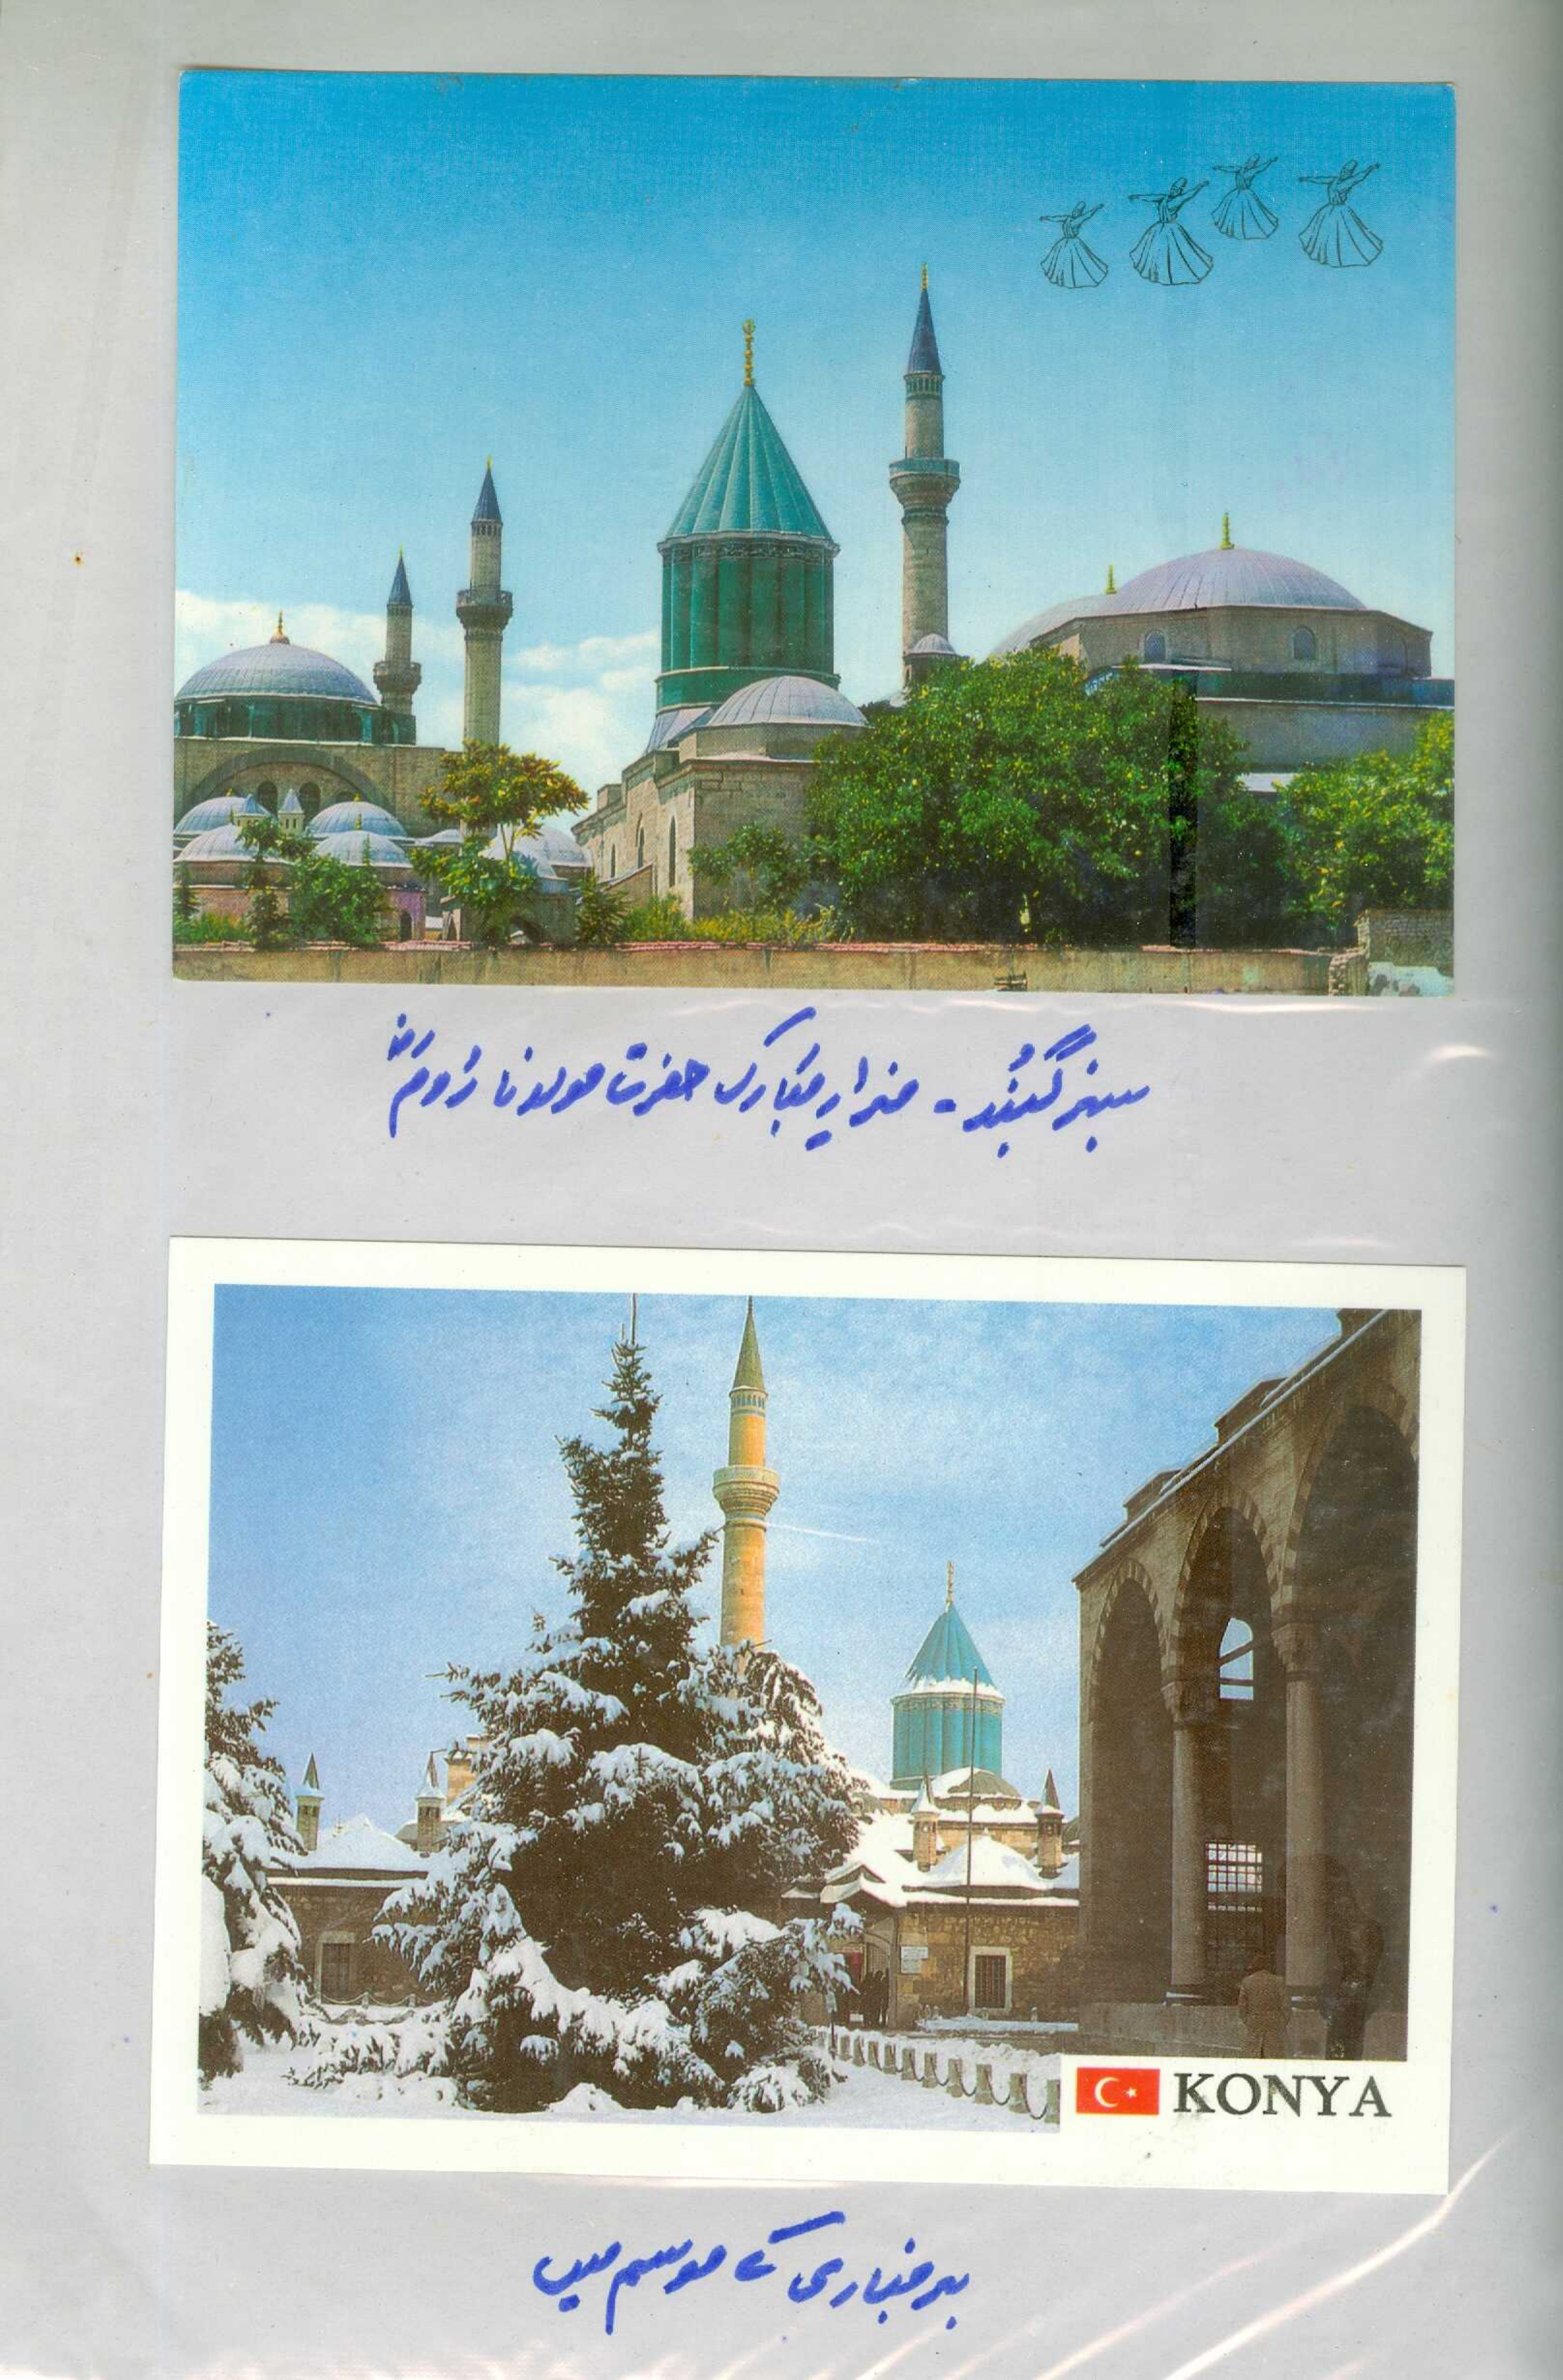 سبز گنبد - مزارِ مبارک حضرت مولانا رُومؒ
KONYA
برفباری کے موسم میں